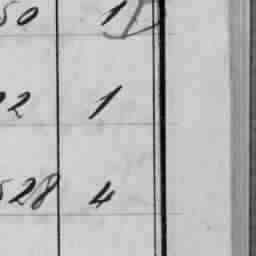 50 1
22 1
528 4